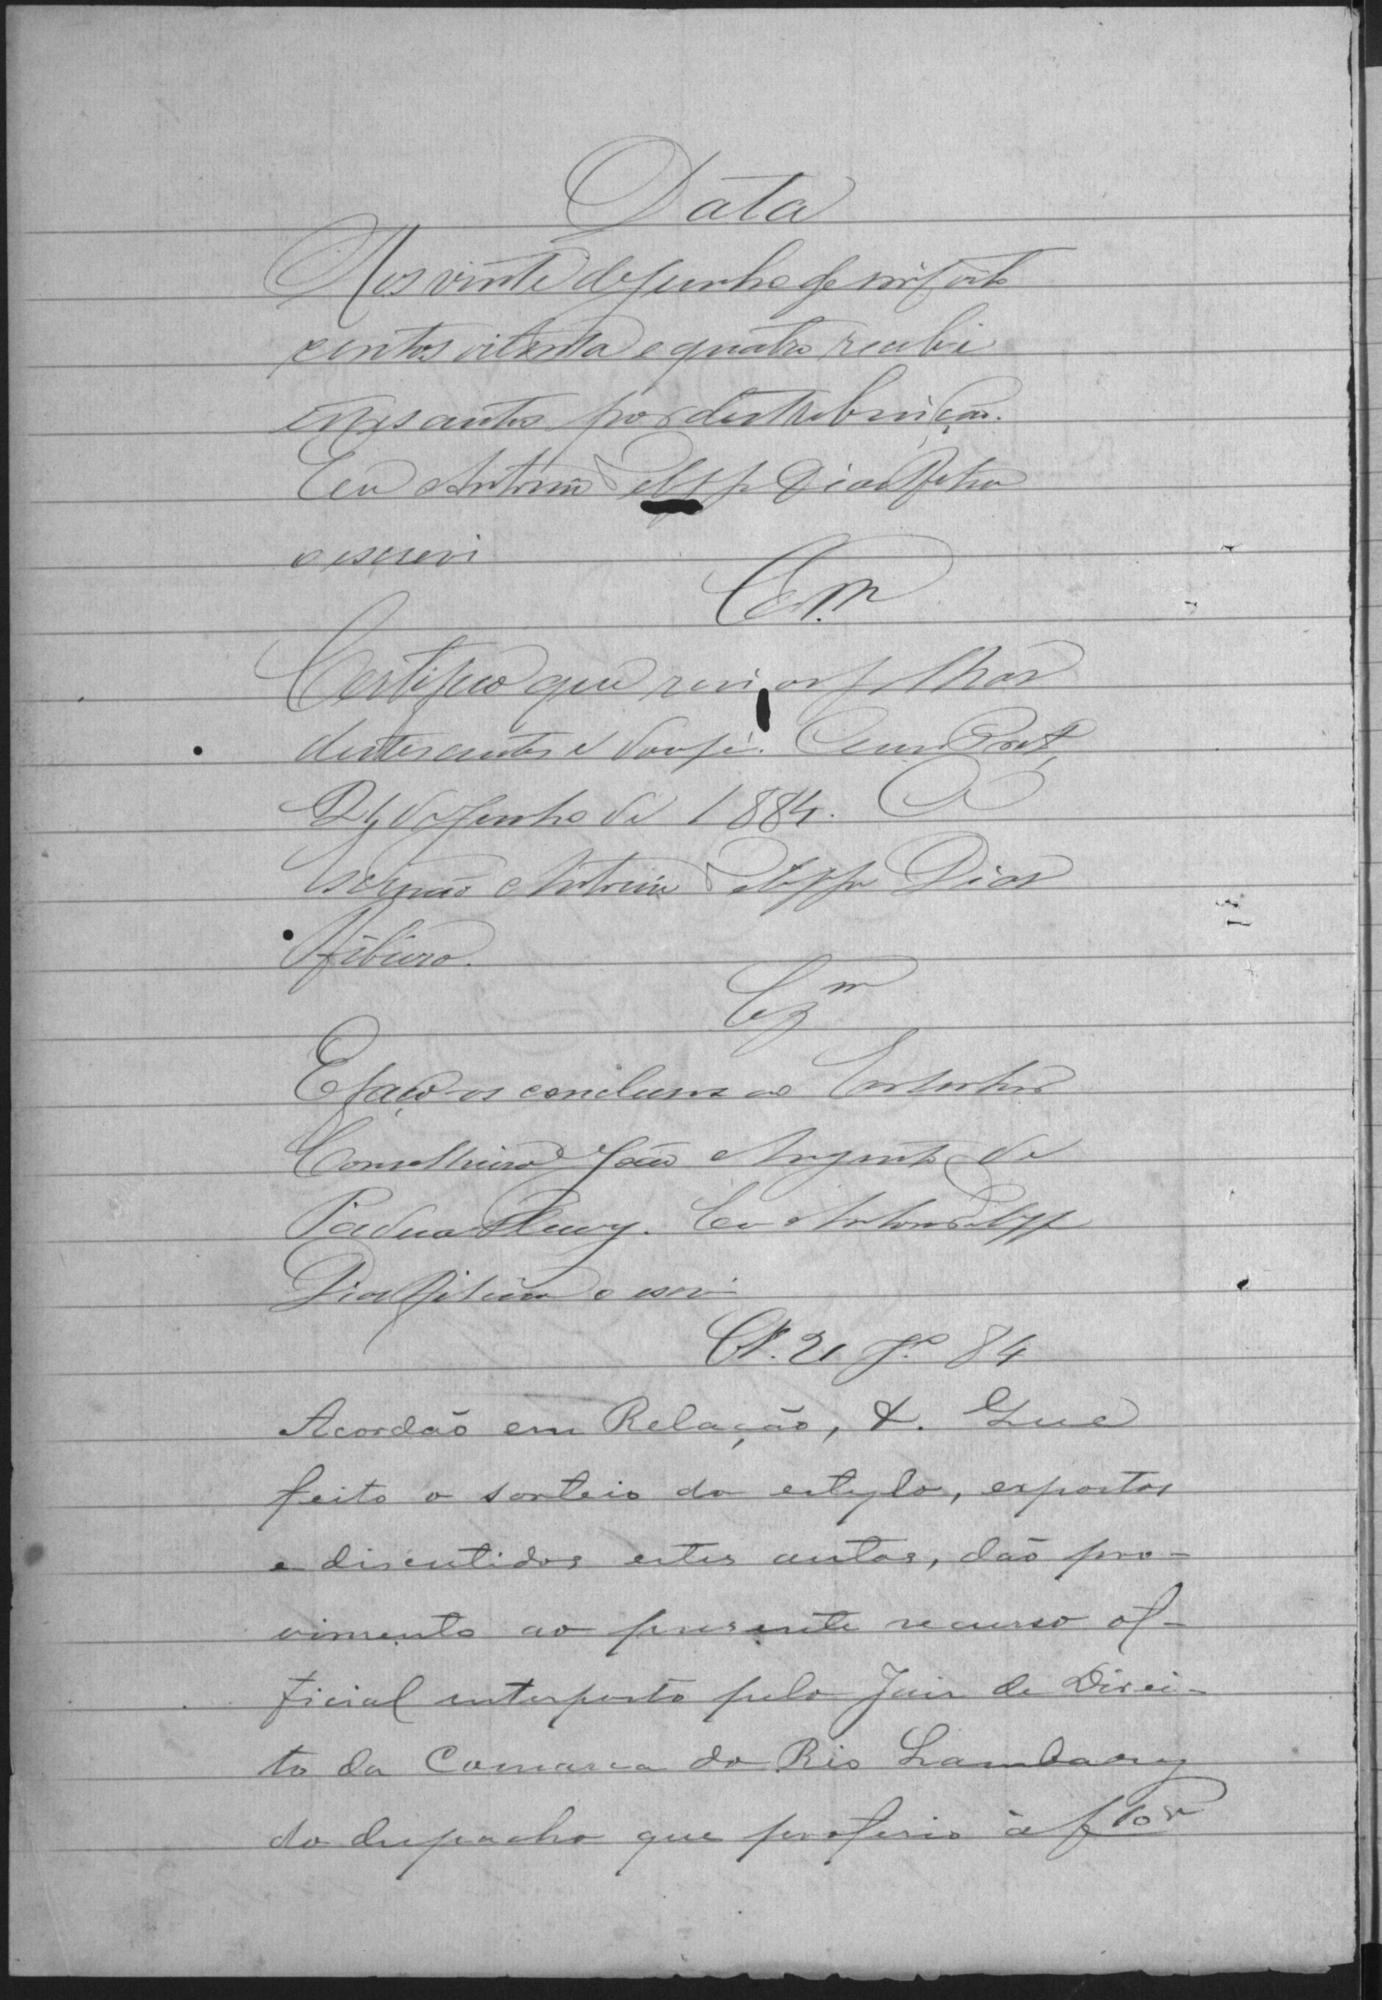 Data
Aos vinte de Junho de mil oito
centos oitenta e quatro recebi
estes autos por distribuição.
Eu Antonio Felippe Dias Ribeiro
o escrevi
Certifico que revi as folhas
destes autos e dou fé. Ouro Preto,
de Junho de 1884. O
Escrivão Antonio Felippe Dias
Ribeiro.
E faço-os conclusos ao Senhor
Conselheiro João Augusto de
Padua Fleury. Eu Antonio Felippe
Dias Ribeiro o escrevi
Cls. 21 Jº 84
Acordão em Relação, &. Que
feito o sorteio do estylo, expostos
e discutidos estes autos, dão pro-
vimento ao presente recurso of-
ficial interposto pelo Juiz de Direi-
to da Comarca do Rio Lambary
do despacho que proferio à f